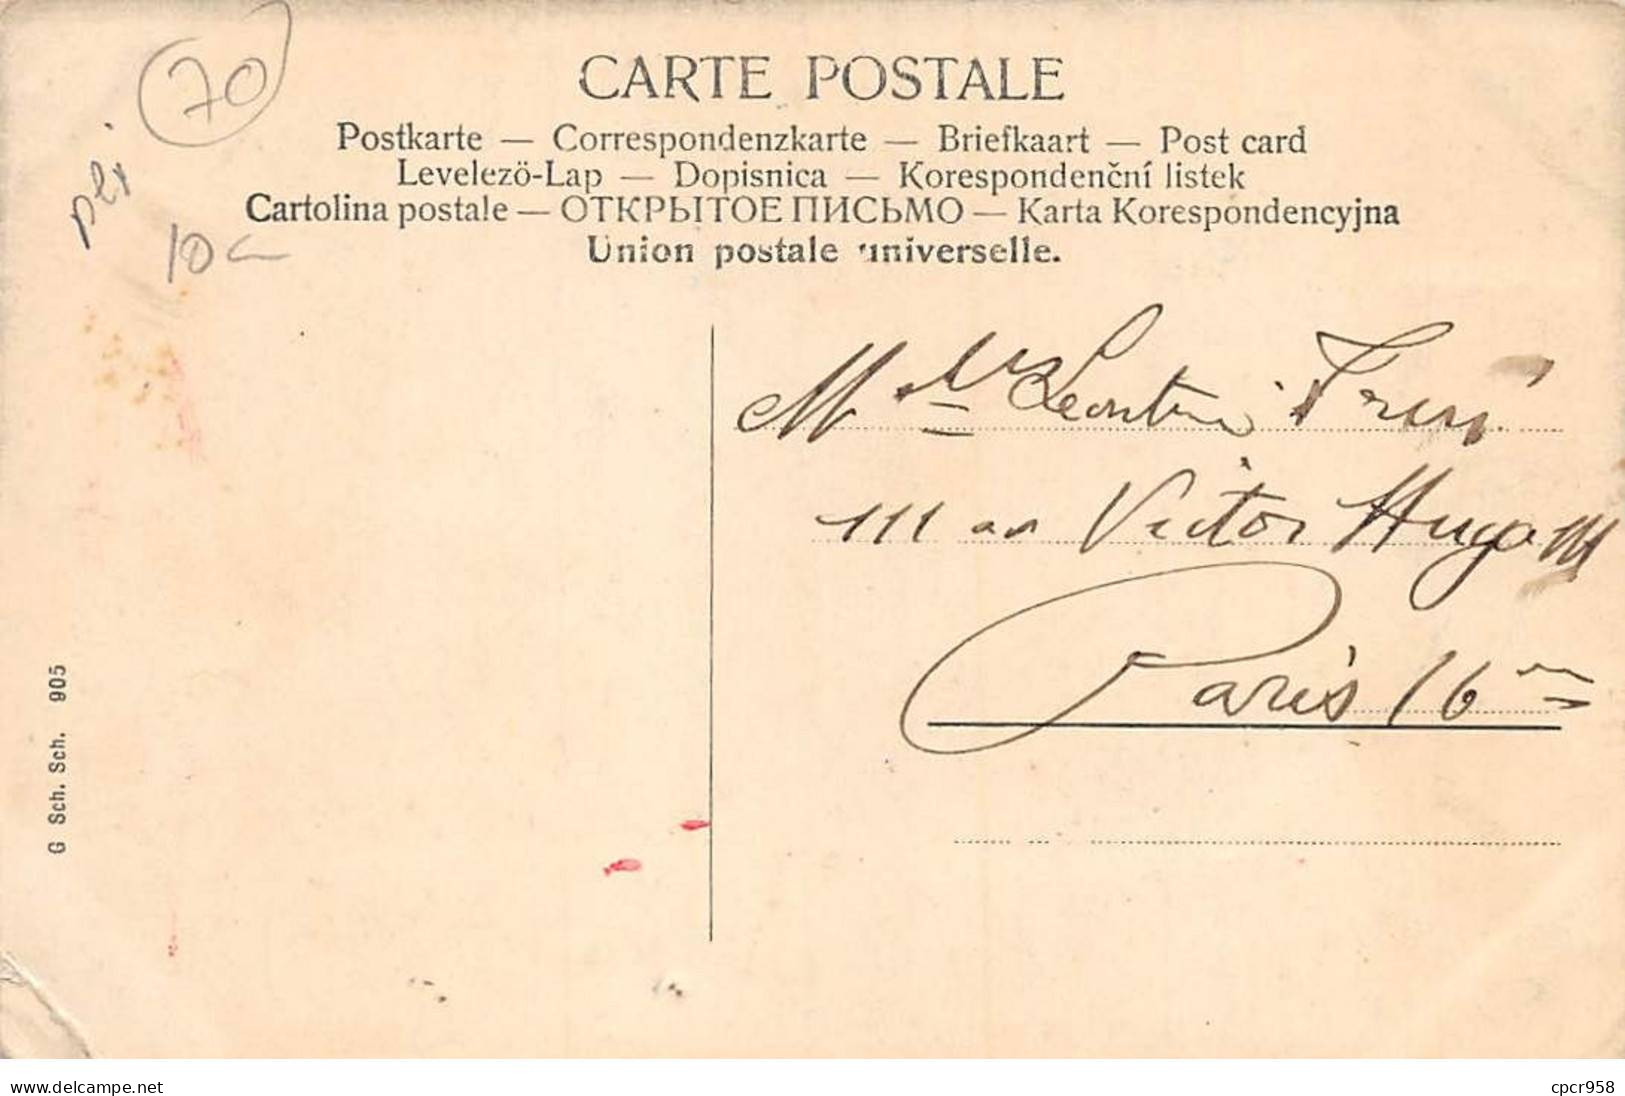 70
pli
10
CARTE POSTALE
Postkarte — Correspondenzkarte — Briefkaart — Post card
Levelezö-Lap — Dopisnica — Korespondenční listek
Cartolina postale — ОТКРЫТОЕ ПИСЬМО — Karta Korespondencyjna
Union postale universelle.
Mlle Leontine
111 av Victor Hugo 111
Paris 16me
G Sch. Sch. 905
www.delcampe.net
cpcr958